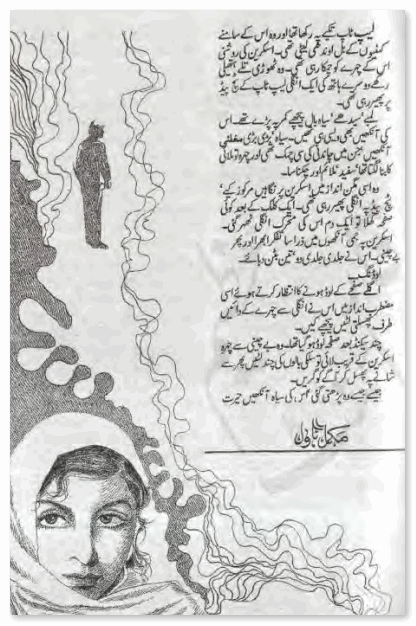 لیپ ٹاپ تکیے پہ رکھا تھا اور وہ اس کے سامنے
کہنیوں کے بل اوندھی لیٹی تھی۔ اسکرین کی روشنی
اس کے چہرے کو چمکا رہی تھی۔ وہ ٹھوڑی تلے ہتھیلی
رکھے دوسرے ہاتھ کی ایک انگلی لیپ ٹاپ کے ٹچ پیڈ
پر پھیر رہی تھی۔
لمبے سیدھے سیاہ بال پیچھے کمر پہ پڑے تھے۔ اس
کی آنکھیں بھی ویسی ہی تھیں۔ سیاہ بڑی بڑی
آنکھیں جن میں چاندی کی سی چمک تھی اور چہرہ ملائی
کا بنا لگتا تھا۔ سفید ملائم اور چمکتا سا۔
وہ اسی مگن انداز میں اسکرین پر نگاہیں مرکوز کیے
ٹچ پیڈ پہ انگلی پھیر رہی تھی۔ ایک کلک کے بعد کوئی
صفحہ کھلا تو ایک دم اس کی متحرک انگلی ٹھہر گئی۔
اسکرین پہ جمی آنکھوں میں ذرا سا تفکر ابھرا اور پھر
بے چینی۔ اس نے جلدی جلدی دو تین بٹن دبائے۔
لوڈنگ۔
اگلے صفحے کے لوڈ ہونے کا انتظار کرتے ہوئے اسی
مضطرب انداز میں اس نے انگلی سے چہرے کے دائیں
طرف پھسلتی لٹیں پیچھے کیں۔
چند سیکنڈ بعد صفحہ لوڈ ہو گیا تھا۔ وہ بے چینی سے چہرہ
اسکرین کے قریب لائی تو سلکی بالوں کی چند لٹیں پھر سے
شانے پہ پھسل کر آگے کو گریں۔
جیسے جیسے وہ پڑھتی گئی اس کی سیاہ آنکھیں حیرت
مکمل ناول